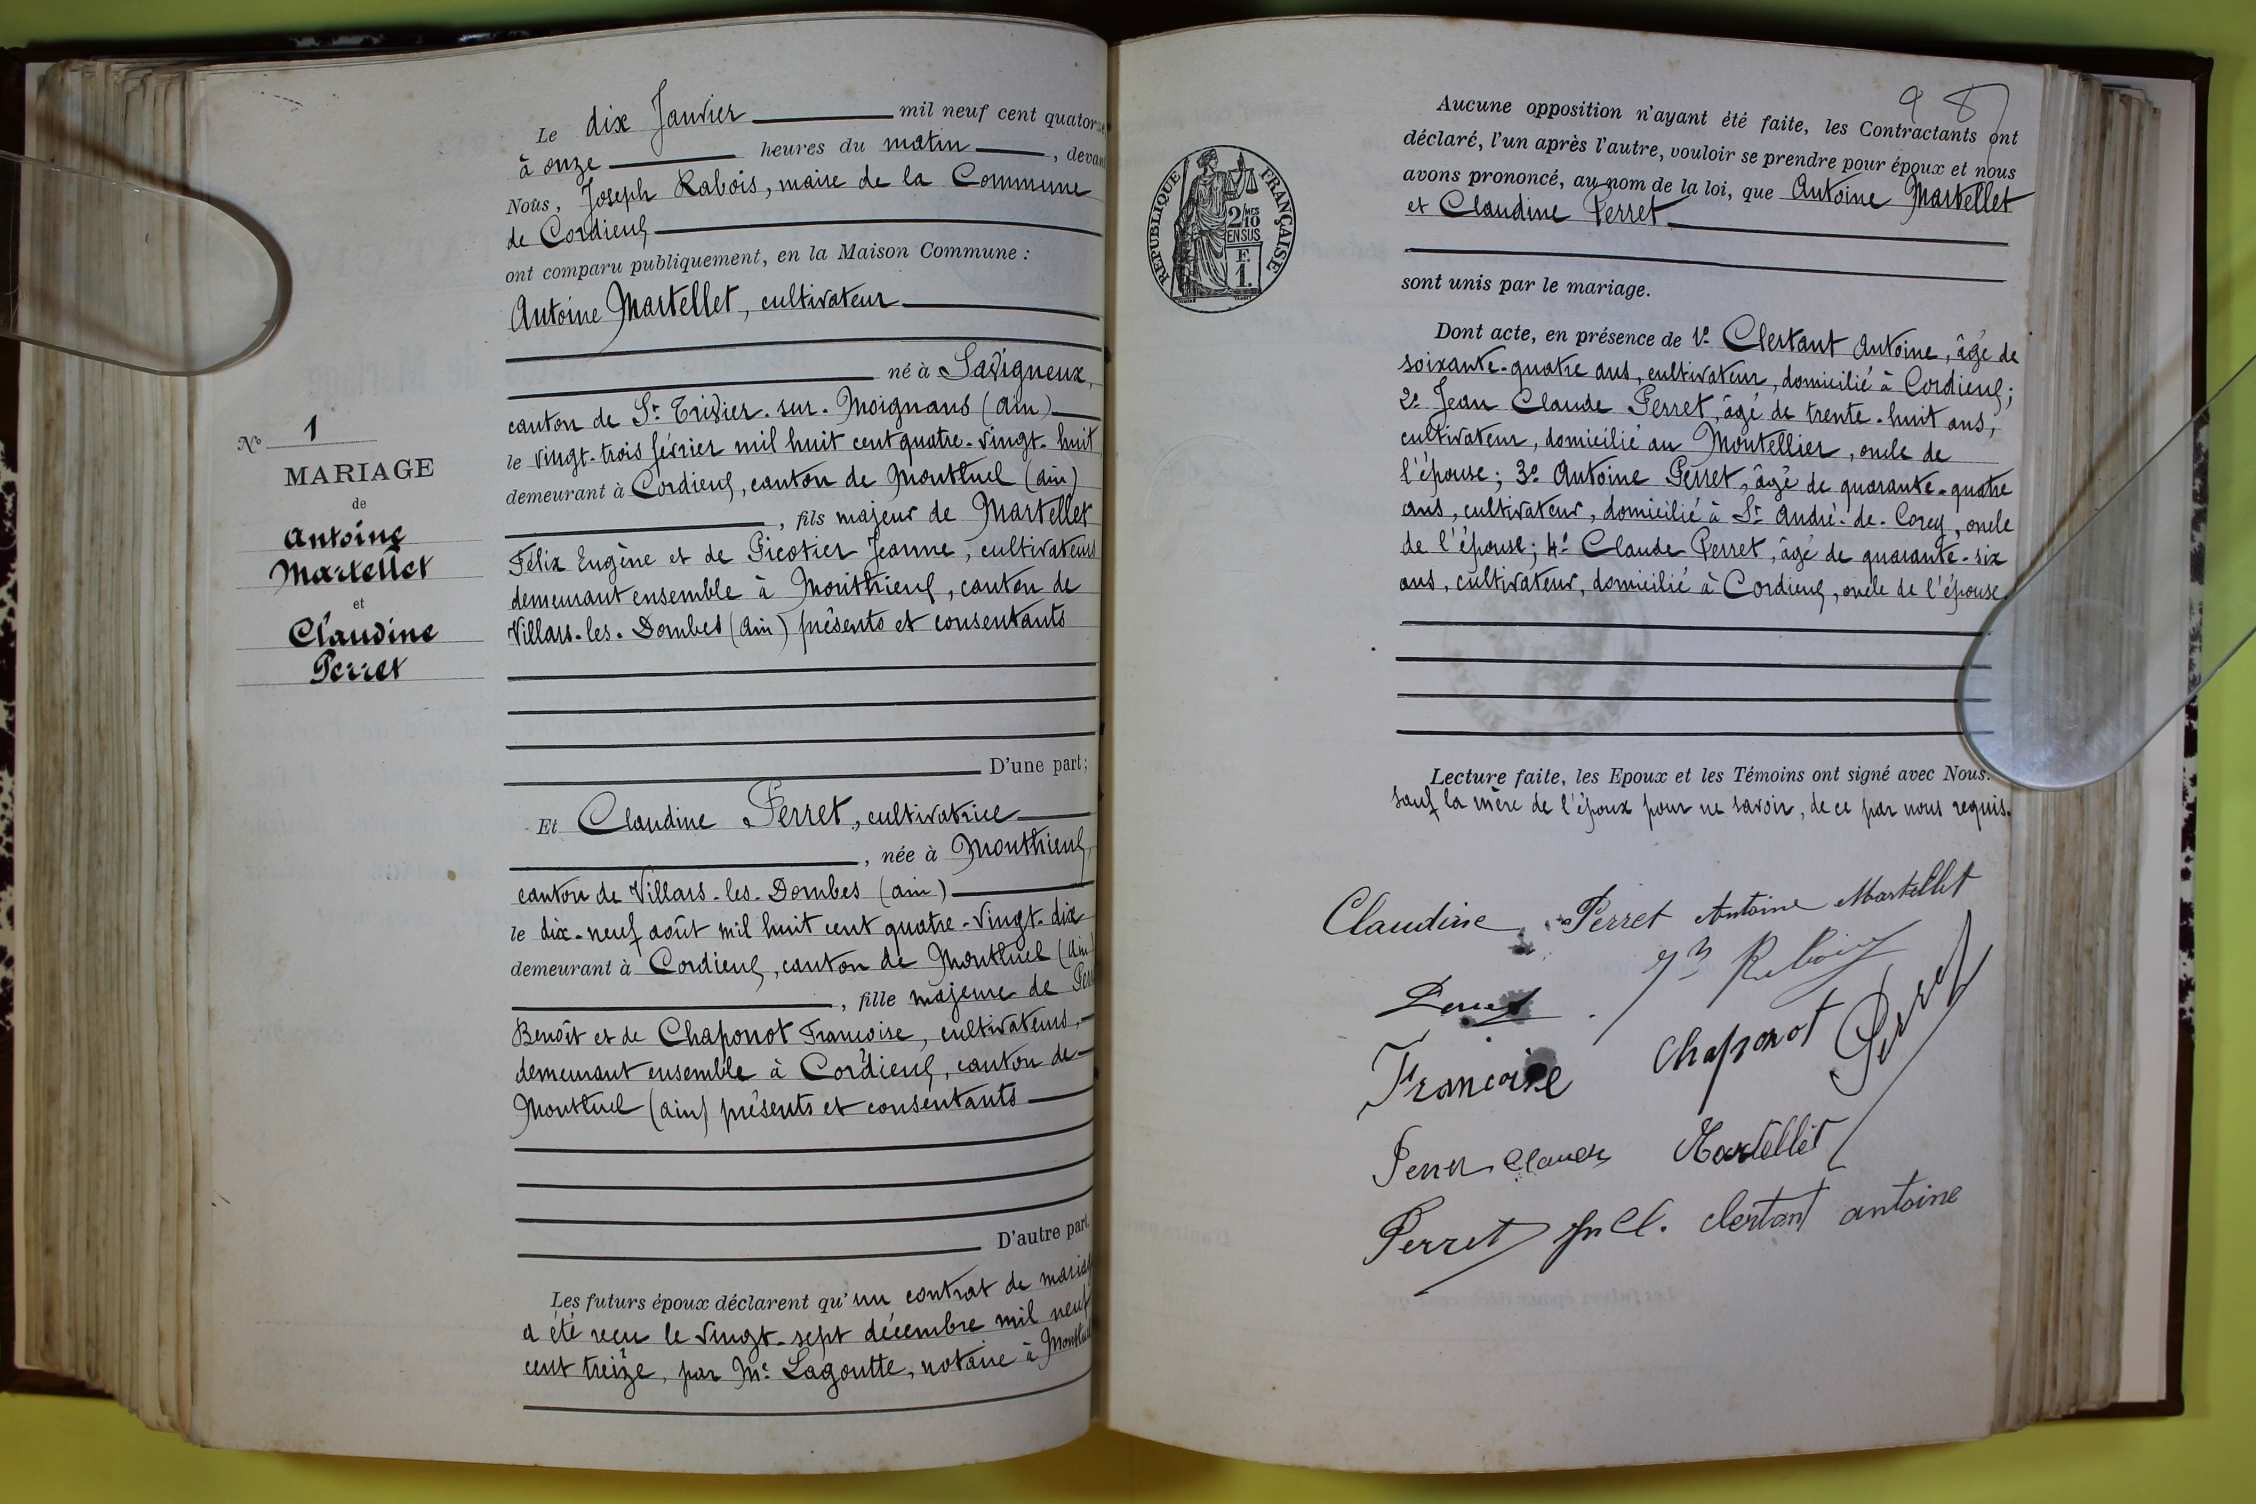 Le dix Janvier mil neuf cent quatorze
à onze heures du matin, devant
Nous, Joseph Rabois, maire de la Commune
de Cordieux
ont comparu publiquement, en la Maison Commune :
Antoine Martellet, cultivateur
né à Savigneux,
canton de St. Trivier-sur-Moignans (Ain)
le vingt-trois février mil huit cent quatre-vingt-huit
demeurant à Cordieux, canton de Montluel (Ain)
, fils majeur de Martellet
Félix Eugène et de Picotier Jeanne, cultivateurs
demeurant ensemble à Monthieux, canton de
Villars-les-Dombes (Ain) présents et consentants
D'une part;
Et Claudine Perret, cultivatrice
, née à Monthieux,
canton de Villars-les-Dombes (Ain)
le dix-neuf août mil huit cent quatre-vingt-dix
demeurant à Cordieux, canton de Montluel (Ain)
, fille majeure de
Benoît et de Chaponot Françoise, cultivateurs,
demeurant ensemble à Cordieux, canton de
Montluel (Ain) présents et consentants
D'autre part.
Les futurs époux déclarent qu'un contrat de mariage
a été reçu le vingt-sept décembre mil neuf
cent treize, par Me. Lagoutte, notaire à Montluel
No 1
MARIAGE
de
Antoine
Martellet
et
Claudine
Perret
98
Aucune opposition n'ayant été faite, les Contractants ont
déclaré, l'un après l'autre, vouloir se prendre pour époux et nous
avons prononcé, au nom de la loi, que Antoine Martellet
et Claudine Perret
sont unis par le mariage.
Dont acte, en présence de 1o. Clertant Antoine, âgé de
soixante-quatre ans, cultivateur, domicilié à Cordieux;
2o. Jean Claude Perret, âgé de trente-huit ans,
cultivateur, domicilié au Montellier, oncle de
l'épouse; 3o. Antoine Perret, âgé de quarante-quatre
ans, cultivateur, domicilié à St. André-de-Corcy, oncle
de l'épouse; 4o. Claude Perret, âgé de quarante-six
ans, cultivateur, domicilié à Cordieux, oncle de l'épouse.
Lecture faite, les Epoux et les Témoins ont signé avec Nous.
sauf la mère de l'époux pour ne savoir, de ce par nous requis.
RÉPUBLIQUE FRANÇAISE
2/MES
10
EN SUS
F.
1.
Claudine Perret Antoine Martellet
Perret
Françoise Chaponot Perret
Perret Claude Martellet
Perret Jn Cl. Clertant antoine